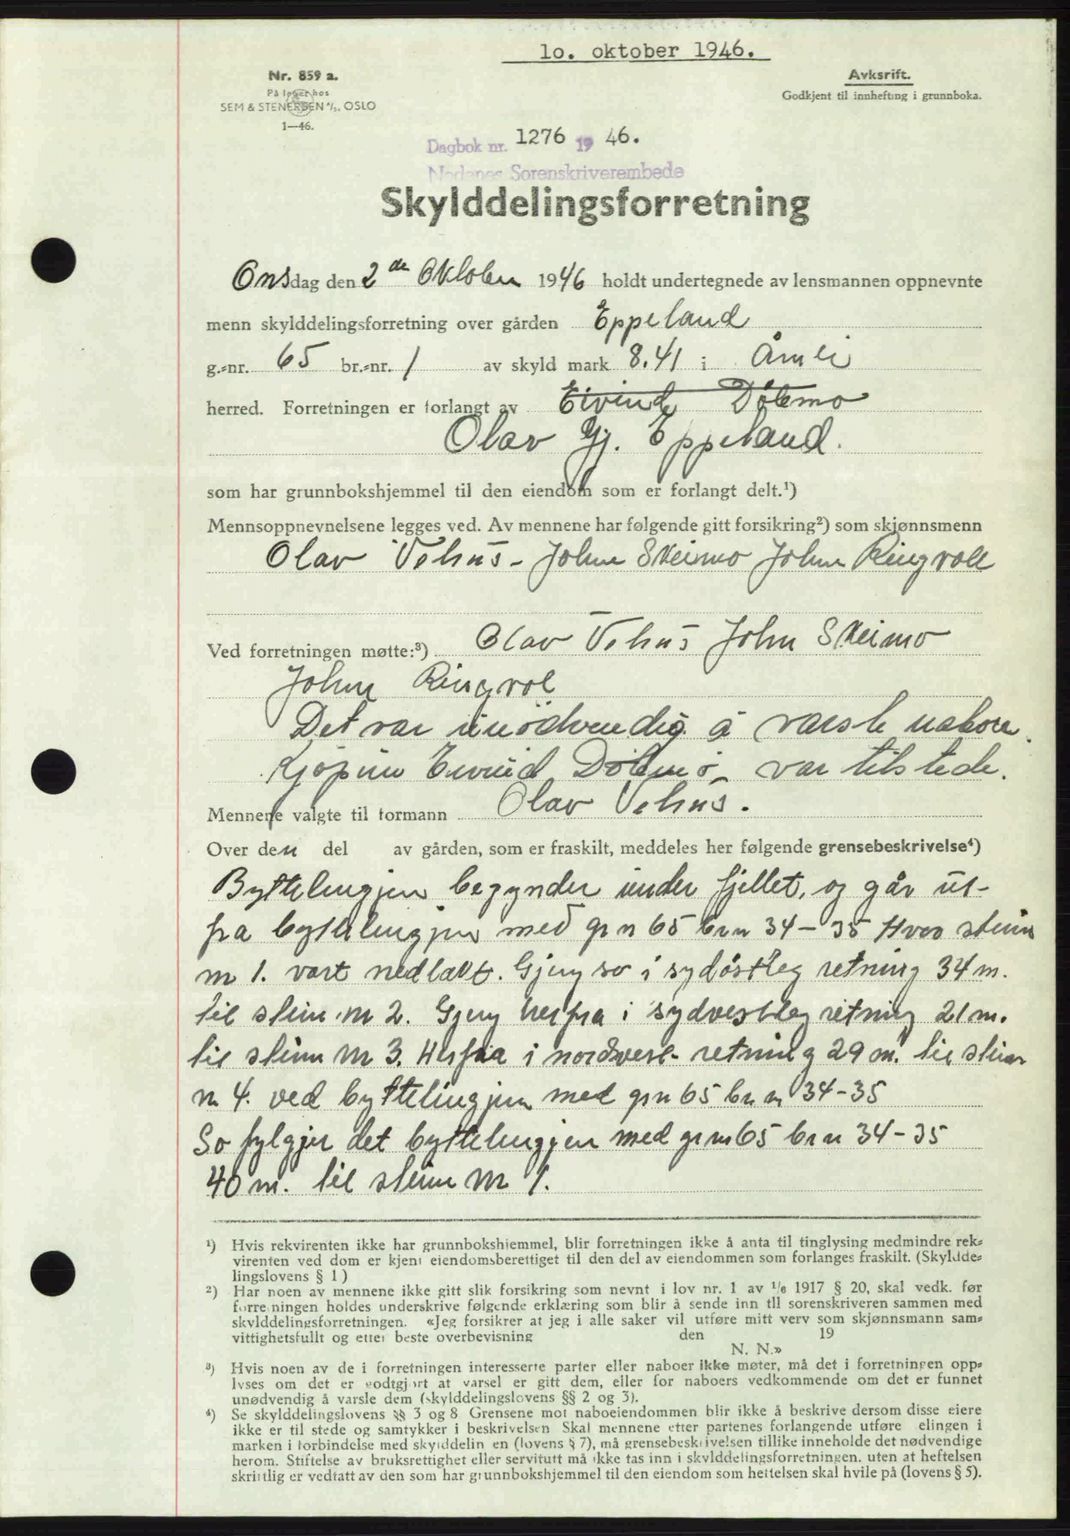 10. oktober 1946.
Nr. 859 a.
På lager hos
SEM & STENERSEN A/S. OSLO
1—46.
Avksrift.
Godkjent til innhefting i grunnboka.
Dagbok nr. 1276 19 46.
Nedenes Sorenskriverembede
Skylddelingsforretning
Onsdag den 2 de Oktober 1946 holdt undertegnede av lensmannen oppnevnte
menn skylddelingsforretning over gården Eppeland
g.-nr. 65 br.-nr. 1 av skyld mark 8.41 i Åmli
herred. Forretningen er forlangt av Eivind Dölemo
Olav Gj. Eppeland.
som har grunnbokshjemmel til den eiendom som er forlangt delt.¹)
Mennsoppnevnelsene legges ved. Av mennene har følgende gitt forsikring²) som skjønnsmenn
Olav Vehus - John Skeimo John Ringvoll
Ved forretningen møtte:³) Olav Vehus John Skeimo
John Ringvol
Det var unödvendig å varsle naboer.
Kjöpinn Eivind Dölemo var tilstede.
Mennene valgte til formann Olav Vehus.
Over den del av gården, som er fraskilt, meddeles her følgende grensebeskrivelse⁴)
Byttelingjen begynder under fjellet, og går ut-
fra byttelingjen med grn 65 brn 34-35 Hvor stein
m 1. vart nedlakt. Gjeng so i sydöstleg retning 34 m.
til stein m 2. Gjeng herfra i sydvestleg retning 21 m.
til stein m 3. Herfra i nordvest- retning 29 m. til stein
n 4. ved byttelingjen med grn 65 brn 34-35
So fylgjer det byttelingjen med grn 65 brn 34-35
40 m. til stein m 1.
¹) Hvis rekvirenten ikke har grunnbokshjemmel, blir forretningen ikke å anta til tinglysing medmindre rek-
virenten ved dom er kjent eiendomsberettiget til den del av eiendommen som forlanges fraskilt. (Skyldde-
lingslovens § 1)
²) Har noen av mennene ikke gitt slik forsikring som nevnt i lov nr. 1 av 1/6 1917 § 20, skal vedk. før
forretningen holdes underskrive følgende erklæring som blir å sende inn til sorenskriveren sammen med
skylddelingsforretningen. «Jeg forsikrer at jeg i alle saker vil utføre mitt verv som skjønnsmann sam-
vittighetsfullt og etter beste overbevisning den 19
N. N.»
³) Hvis noen av de i forretningen interesserte parter eller naboer ikke møter, må det i forretningen opp-
lyses om det er godtgjort at varsel er gitt dem, eller for naboers vedkommende om det er funnet
unødvendig å varsle dem (skylddelingslovens §§ 2 og 3).
⁴) Se skylddelingslovens §§ 3 og 8 Grensene mot naboeiendommen blir ikke å beskrive dersom disse eiere
ikke er til stede og samtykker i beskrivelsen Skal mennene etter partenes forlangende utføre elingen i
marken i forbindelse med skylddelin en (lovens § 7), må grensebeskrivelsen tillike inneholde det nødvendige
herom. Stiftelse av bruksrettighet eller servitutt må ikke tas inn i skylddelingsforretningen, uten at heftelsen
skriftlig er vedtatt av den som har grunnbokshjemmel til den eiendom som heftelsen skal hvile på (lovens § 5).